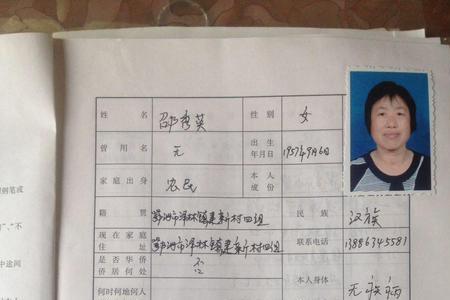 姓 名 邵秀英 性 别 女
曾 用 名 无 出 生 年月日 1957年9月6日
家庭出身 农民 本 人 成 份
籍 别 鄂州市泽林镇建新村四组 民 族 汉族
现在家庭 住 址 鄂州市泽林镇建新村四组 联系电话 13886345581
是否华侨 侨居何处 否
何时何地何人 本人身体 无疾病